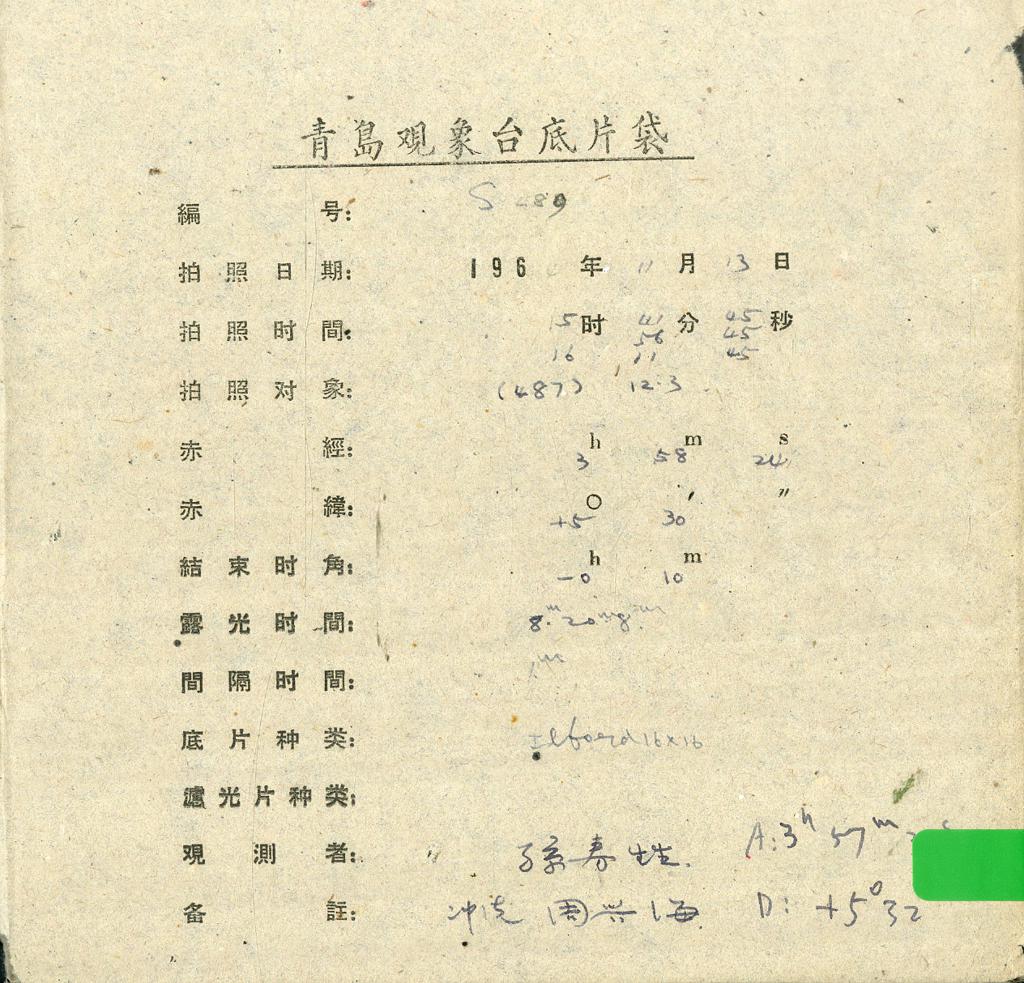 青島观象台底片袋
編号: S 489
拍照日期: 196 年 11 月 13 日
拍照时間: 15 时 41 分 45 秒
56 45
16 11 45
拍照对象: (487) 12.3
赤經: 3 h 58 m 24 s
赤緯: +5 ○ 30 ′ ″
結束时角: -0 h 10 m
露光时間: 8.m 20m 8.m
間隔时間: 1m
底片种类: Ilford 16×16
濾光片种类:
观測者: 孫春生. A: 3h 57m
备註: 冲洗 周兴海 D: +5° 32